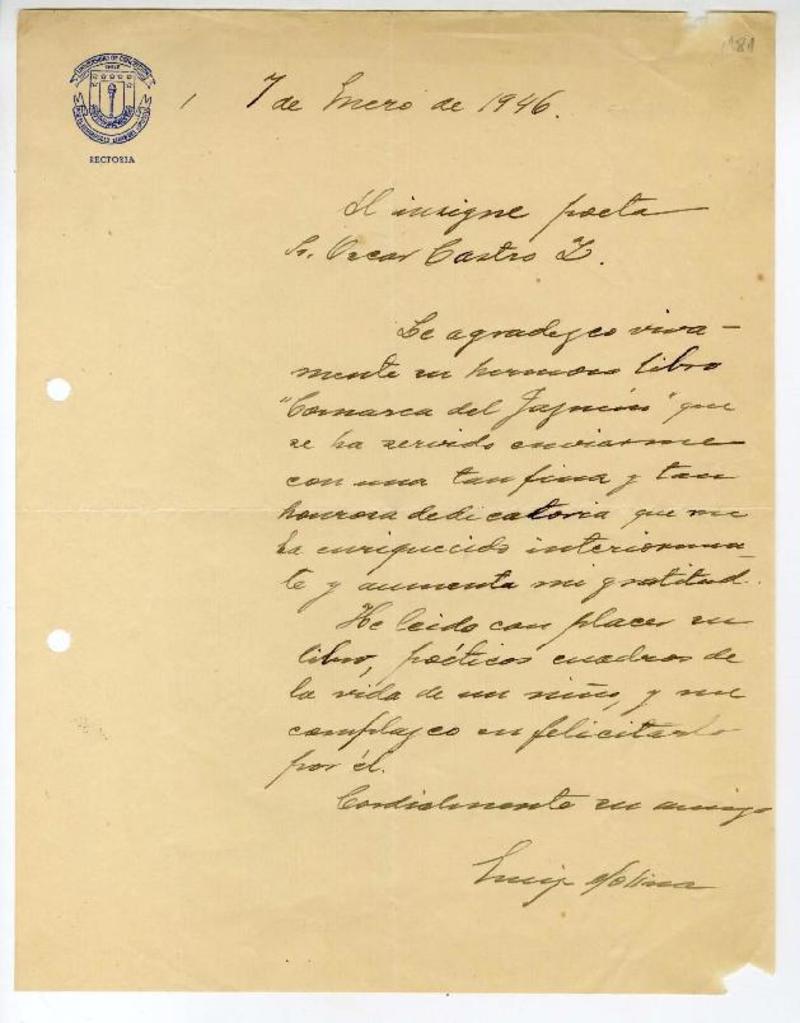 181
UNIVERSIDAD DE CONCEPCION
CHILE
RECTORIA
7 de Enero de 1946.
Al insigne poeta
Sr. Oscar Castro Z.
Le agradezco viva-
mente su hermoso libro
"Comarca del Jazmín" que
se ha servido enviarme
con una tan fina y tan
honrosa dedicatoria que me
ha enriquecido interiormen-
te y aumenta mi gratitud.
He leido con placer su
libro, poéticos cuadros de
la vida de un niño, y me
complazco en felicitarlo
por él.
Cordialmente su amigo
Enriq Molina